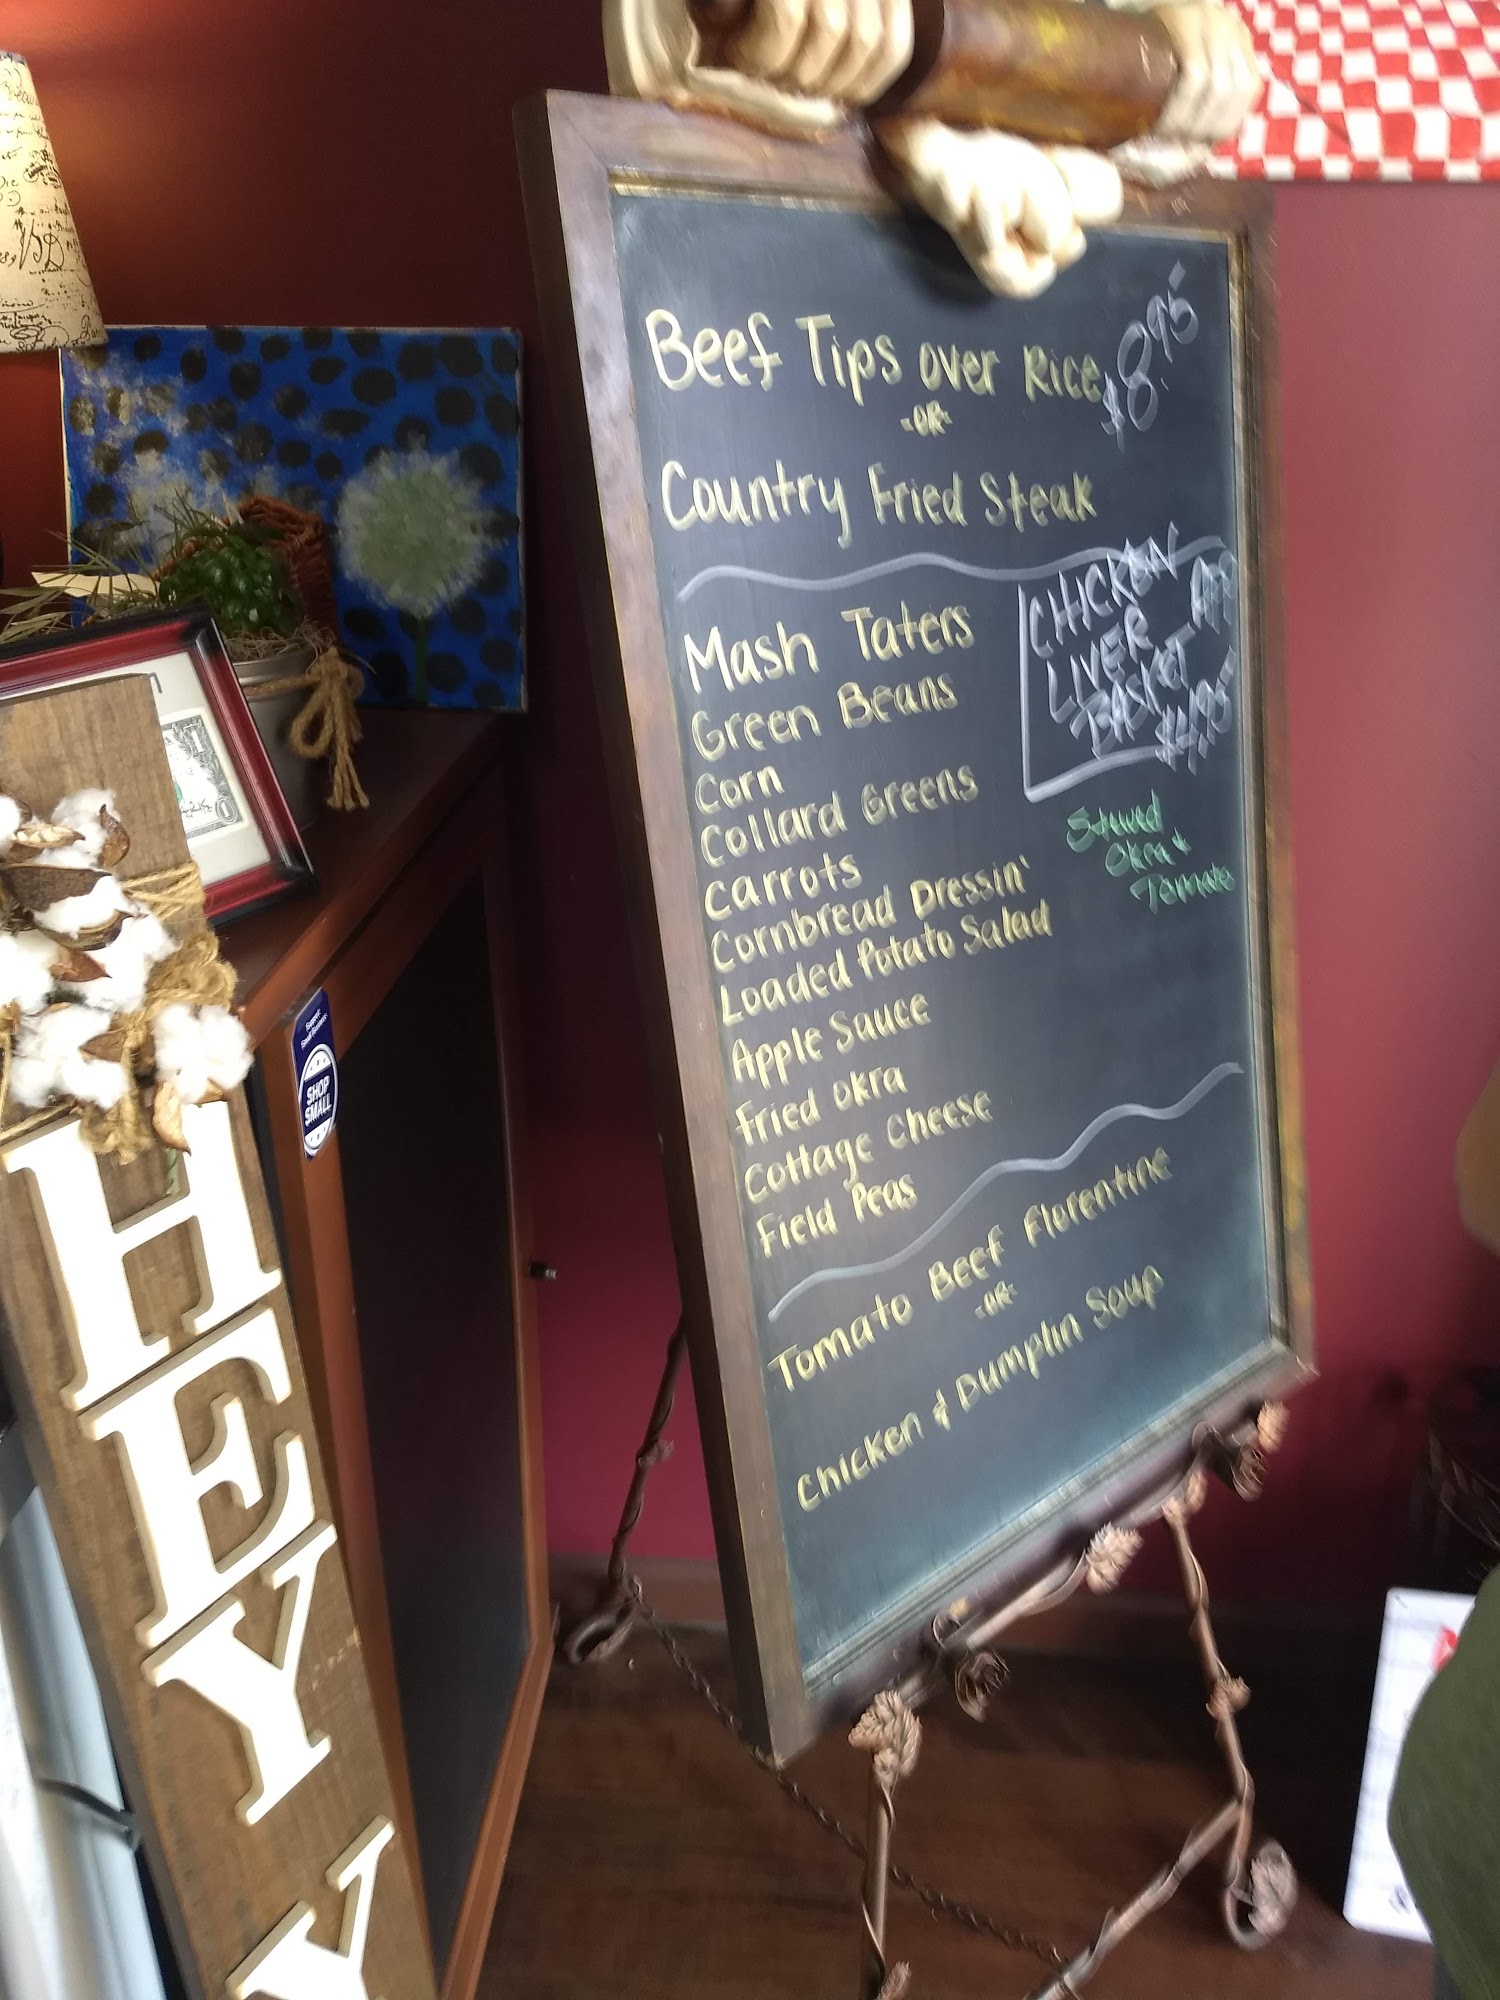 Beef Tips over Rice
$8.95
-OR-
Country Fried Steak
CHICKEN
LIVER
BASKET
$4.95
Mash Taters
Green Beans
Corn
Collard Greens
Carrots
Cornbread Dressin'
Loaded Potato Salad
Apple Sauce
Fried Okra
Cottage Cheese
Field Peas
Stewed
Okra +
Tomato
Tomato Beef Florentine
-OR-
Chicken & Dumplin Soup
HEY Y
SHOP
SMALL